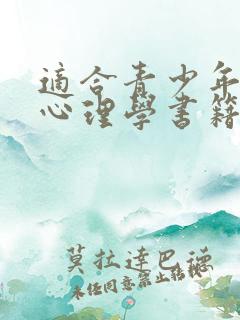 適合青少年
心理學書籍
莫拉達巴德
未經同意禁止轉載